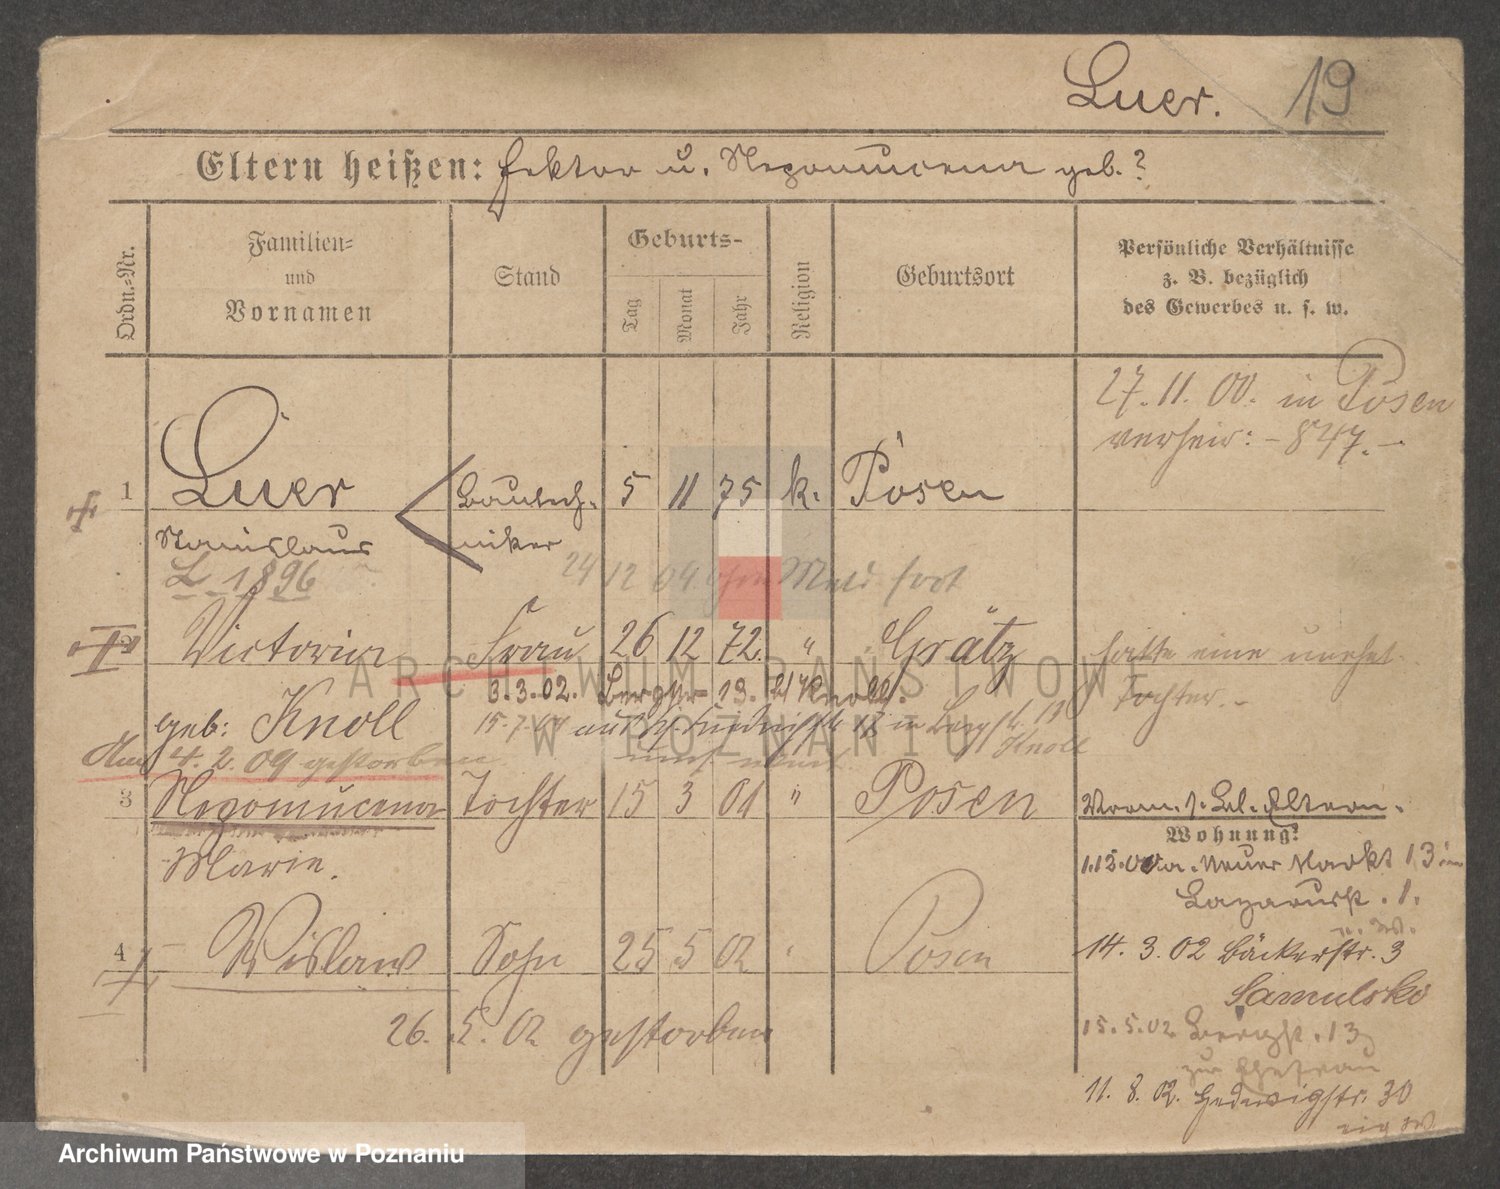 Luer. 19
Eltern heißen: Hektor u. Nepomucena geb. ?
Ordn.-Nr.
Familien- und Vornamen
Stand
Geburts-
Tag
Monat
Jahr
Religion
Geburtsort
Persönliche Verhältnisse
z. B. bezüglich
des Gewerbes u. s. w.
27. 11. 00. in Posen
verheir: - 847. -
1 Luer Bautech- 5 11 75 k. Posen
Stanislaus niker
L. 1896
24 12 04 ohne Meld fort
2 Victoria Frau 26 12 72. " Grätz hatte eine unehel.
3.3.02. Bergstr 13. Knoll. Tochter. -
geb: Knoll 15.7.
Knoll
Am 4. 2. 09 gestorben
3 Nepomucena Tochter 15 3 01 " Posen
Marie.
Eltern.
Wohnung:
Neuer Markt 13
Lazarusstr. 1.
4 Wislaw Sohn 25 5 02 Posen
14. 3. 02 Bäckerstr. 3
Samulski
26. 5. 02 gestorben
15. 5. 02 Bergstr. 13
zur Ehefrau
11. 8. 02. Hedwigstr. 30
ARCHIWUM PAŃSTWOWE
W POZNANIU
Archiwum Państwowe w Poznaniu